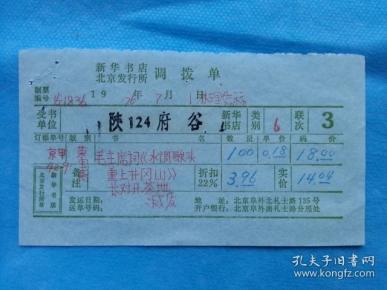 新华书店
北京发行所 调拨单
制票
编号 1976年7月1
受书
单位 陕124府谷 新华
书店 类
别 6 联
次 3
订单单号
毛主席词《水调歌头 100 0.18 18.00
重上井冈山》
备
注 折扣
22% 3.96 实
价 14.04
新华书店
北京发行所
发运日期 地 址：北京阜外北礼士路135号
运单号码 开户银行：北京阜外南礼士路分理处
孔夫子旧书网